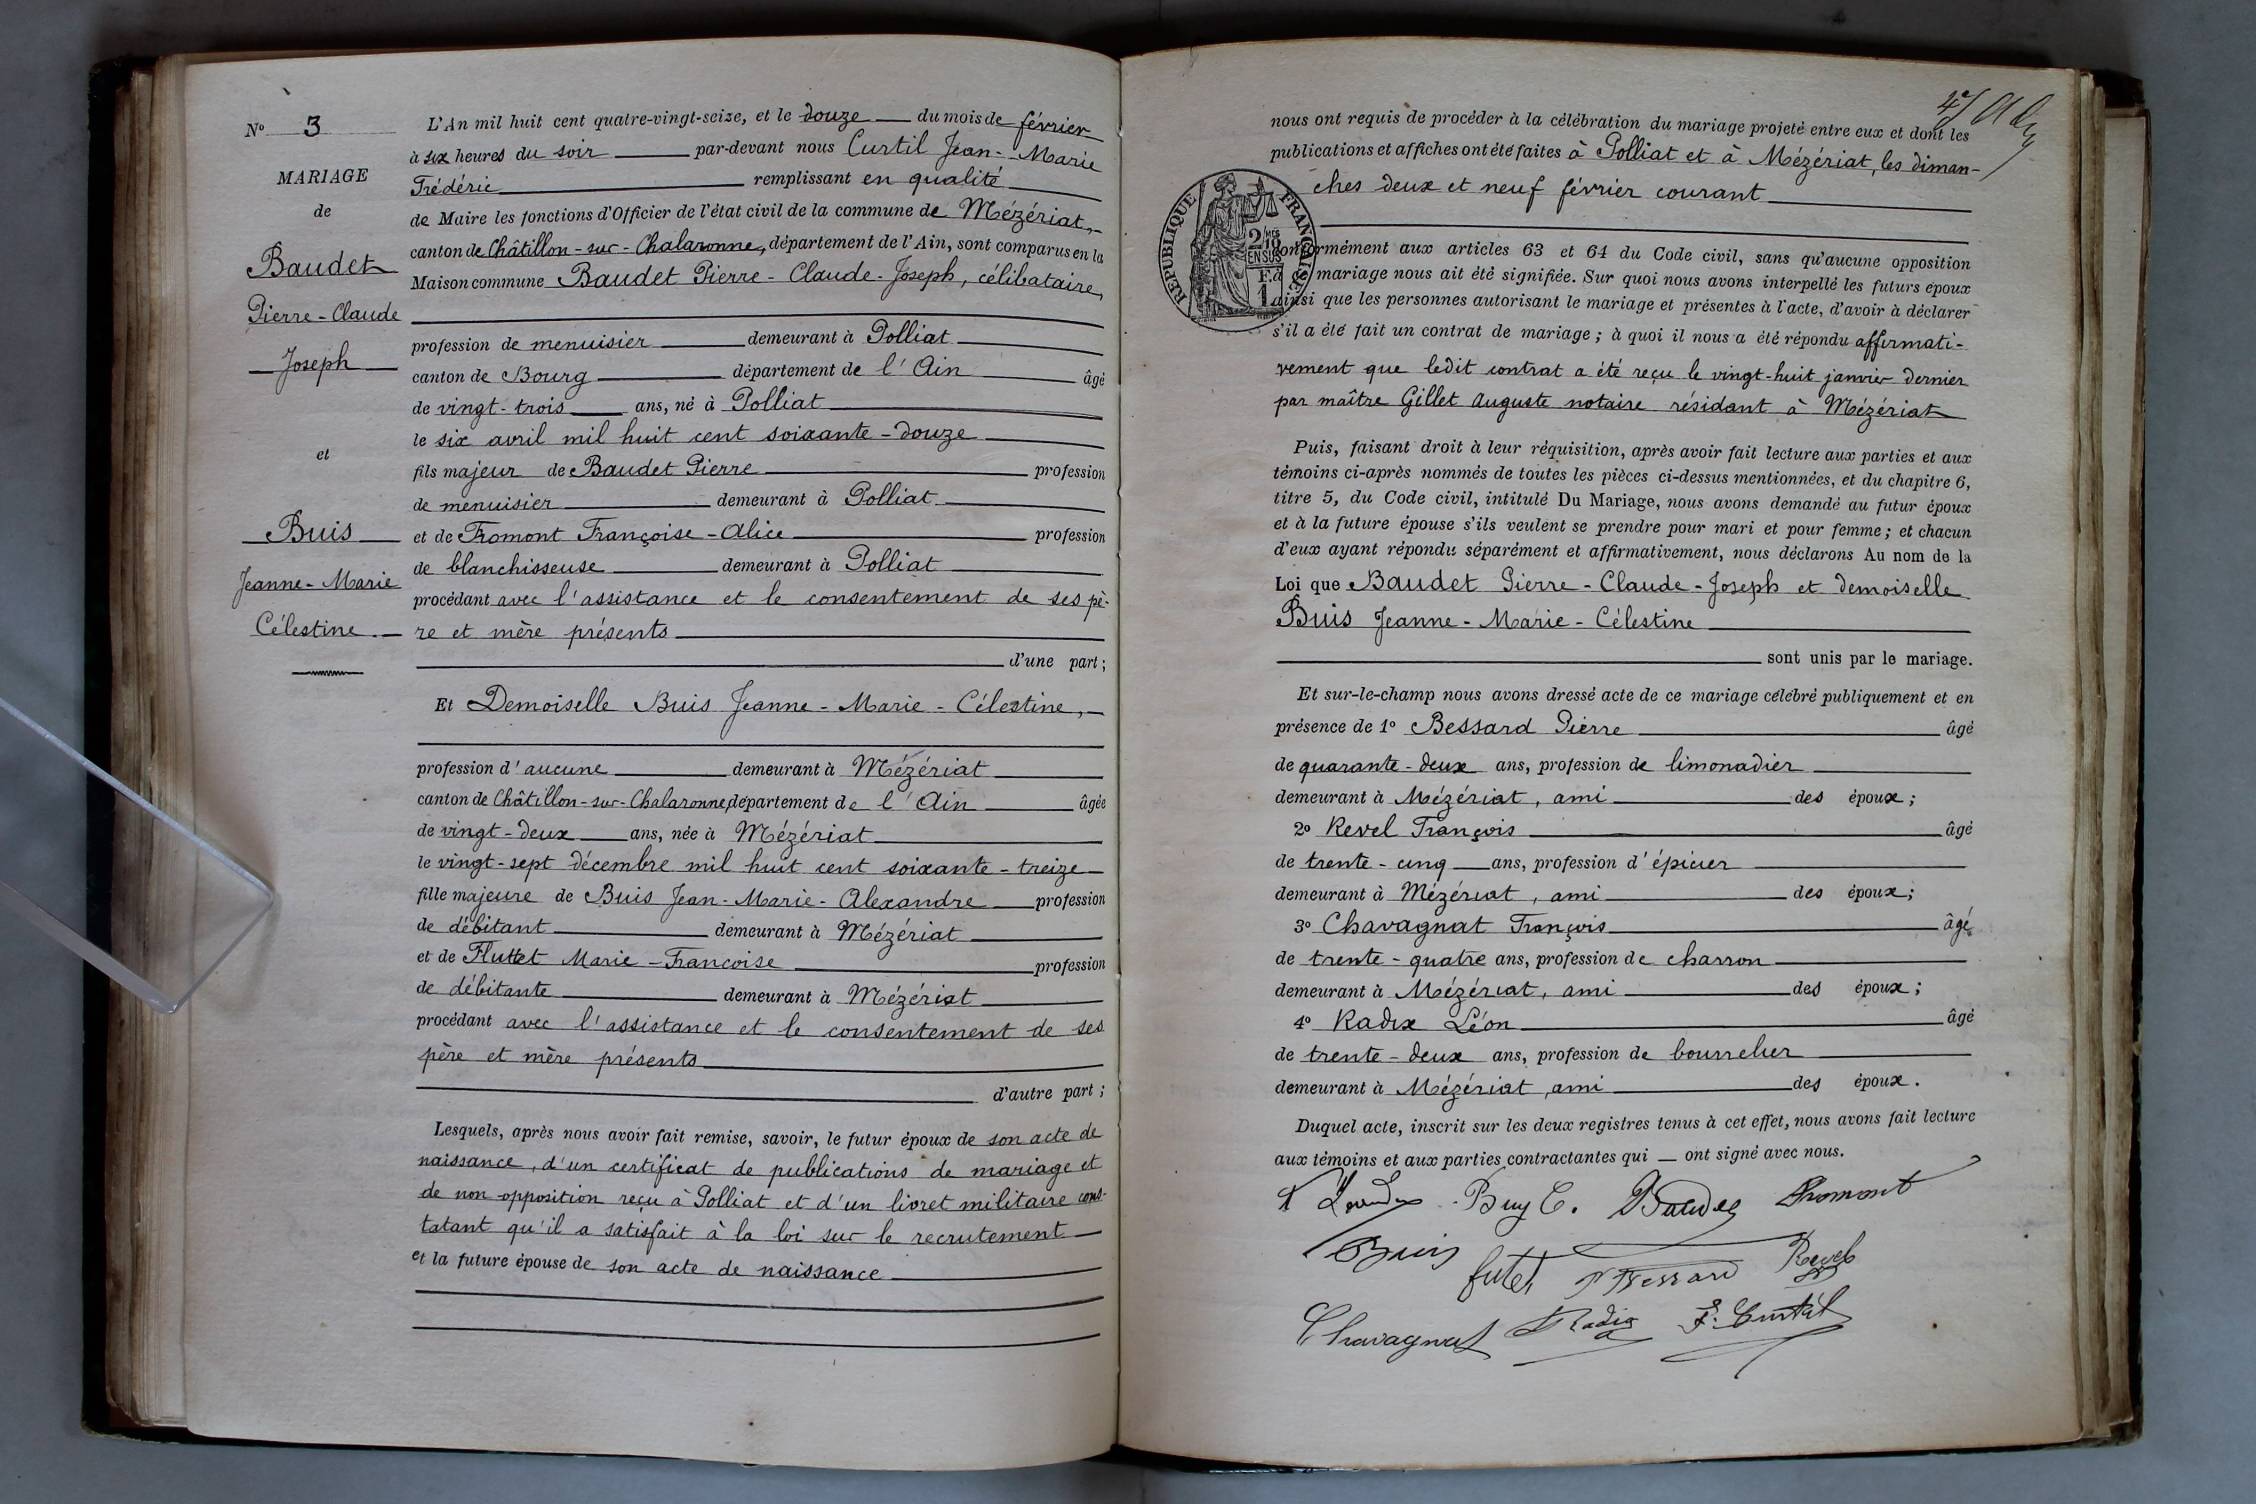 N° 3
MARIAGE
de
Baudet
Pierre-Claude
Joseph
et
Buis
Jeanne-Marie
Célestine
L'An mil huit cent quatre-vingt-seize, et le douze du mois de février
à six heures du soir par-devant nous Curtil Jean-Marie
Frédéric remplissant en qualité
de Maire les fonctions d'Officier de l'état civil de la commune de Mézériat,
canton de Châtillon-sur-Chalaronne, département de l'Ain, sont comparus en la
Maison commune Baudet Pierre-Claude-Joseph, célibataire,
profession de menuisier demeurant à Polliat
canton de Bourg département de l'Ain âgé
de vingt-trois ans, né à Polliat
le six avril mil huit cent soixante-douze
fils majeur de Baudet Pierre profession
de menuisier demeurant à Polliat
et de Fromont Françoise-Alice profession
de blanchisseuse demeurant à Polliat
procédant avec l'assistance et le consentement de ses pè-
re et mère présents
d'une part;
Et Demoiselle Buis Jeanne-Marie-Célestine,
profession d'aucune demeurant à Mézériat
canton de Châtillon-sur-Chalaronne, département de l'Ain âgée
de vingt-deux ans, née à Mézériat
le vingt-sept décembre mil huit cent soixante-treize
fille majeure de Buis Jean-Marie-Alexandre profession
de débitant demeurant à Mézériat
et de Fluttet Marie-Francoise profession
de débitante demeurant à Mézériat
procédant avec l'assistance et le consentement de ses
père et mère présents
d'autre part;
Lesquels, après nous avoir fait remise, savoir, le futur époux de son acte de
naissance, d'un certificat de publications de mariage et
de non opposition reçu à Polliat et d'un livret militaire cons-
tatant qu'il a satisfait à la loi sur le recrutement
et la future épouse de son acte de naissance
nous ont requis de procéder à la célébration du mariage projeté entre eux et dont les
publications et affiches ont été faites à Polliat et à Mézériat, les diman-
ches deux et neuf février courant
RÉPUBLIQUE FRANÇAISE
2/10MES
EN SUS
1 F.
conformément aux articles 63 et 64 du Code civil, sans qu'aucune opposition
mariage nous ait été signifiée. Sur quoi nous avons interpellé les futurs époux
ainsi que les personnes autorisant le mariage et présentes à l'acte, d'avoir à déclarer
s'il a été fait un contrat de mariage; à quoi il nous a été répondu affirmati-
vement que ledit contrat a été reçu le vingt-huit janvier dernier
par maître Gillet Auguste notaire résidant à Mézériat
Puis, faisant droit à leur réquisition, après avoir fait lecture aux parties et aux
témoins ci-après nommés de toutes les pièces ci-dessus mentionnées, et du chapitre 6,
titre 5, du Code civil, intitulé Du Mariage, nous avons demandé au futur époux
et à la future épouse s'ils veulent se prendre pour mari et pour femme; et chacun
d'eux ayant répondu séparément et affirmativement, nous déclarons Au nom de la
Loi que Baudet Pierre-Claude-Joseph et demoiselle
Buis Jeanne-Marie-Célestine
sont unis par le mariage.
Et sur-le-champ nous avons dressé acte de ce mariage célébré publiquement et en
présence de 1° Bessard Pierre âgé
de quarante-deux ans, profession de limonadier
demeurant à Mézériat, ami des époux;
2° Revel François âgé
de trente-cinq ans, profession d'épicier
demeurant à Mézériat, ami des époux;
3° Chavagnat François âgé
de trente-quatre ans, profession de charron
demeurant à Mézériat, ami des époux;
4° Radix Léon âgé
de trente-deux ans, profession de bourrelier
demeurant à Mézériat, ami des époux.
Duquel acte, inscrit sur les deux registres tenus à cet effet, nous avons fait lecture
aux témoins et aux parties contractantes qui ont signé avec nous.
Buy C. Baudet Fromont
Buis futet P Bessard Revel
Chavagnat Radix F. Curtil